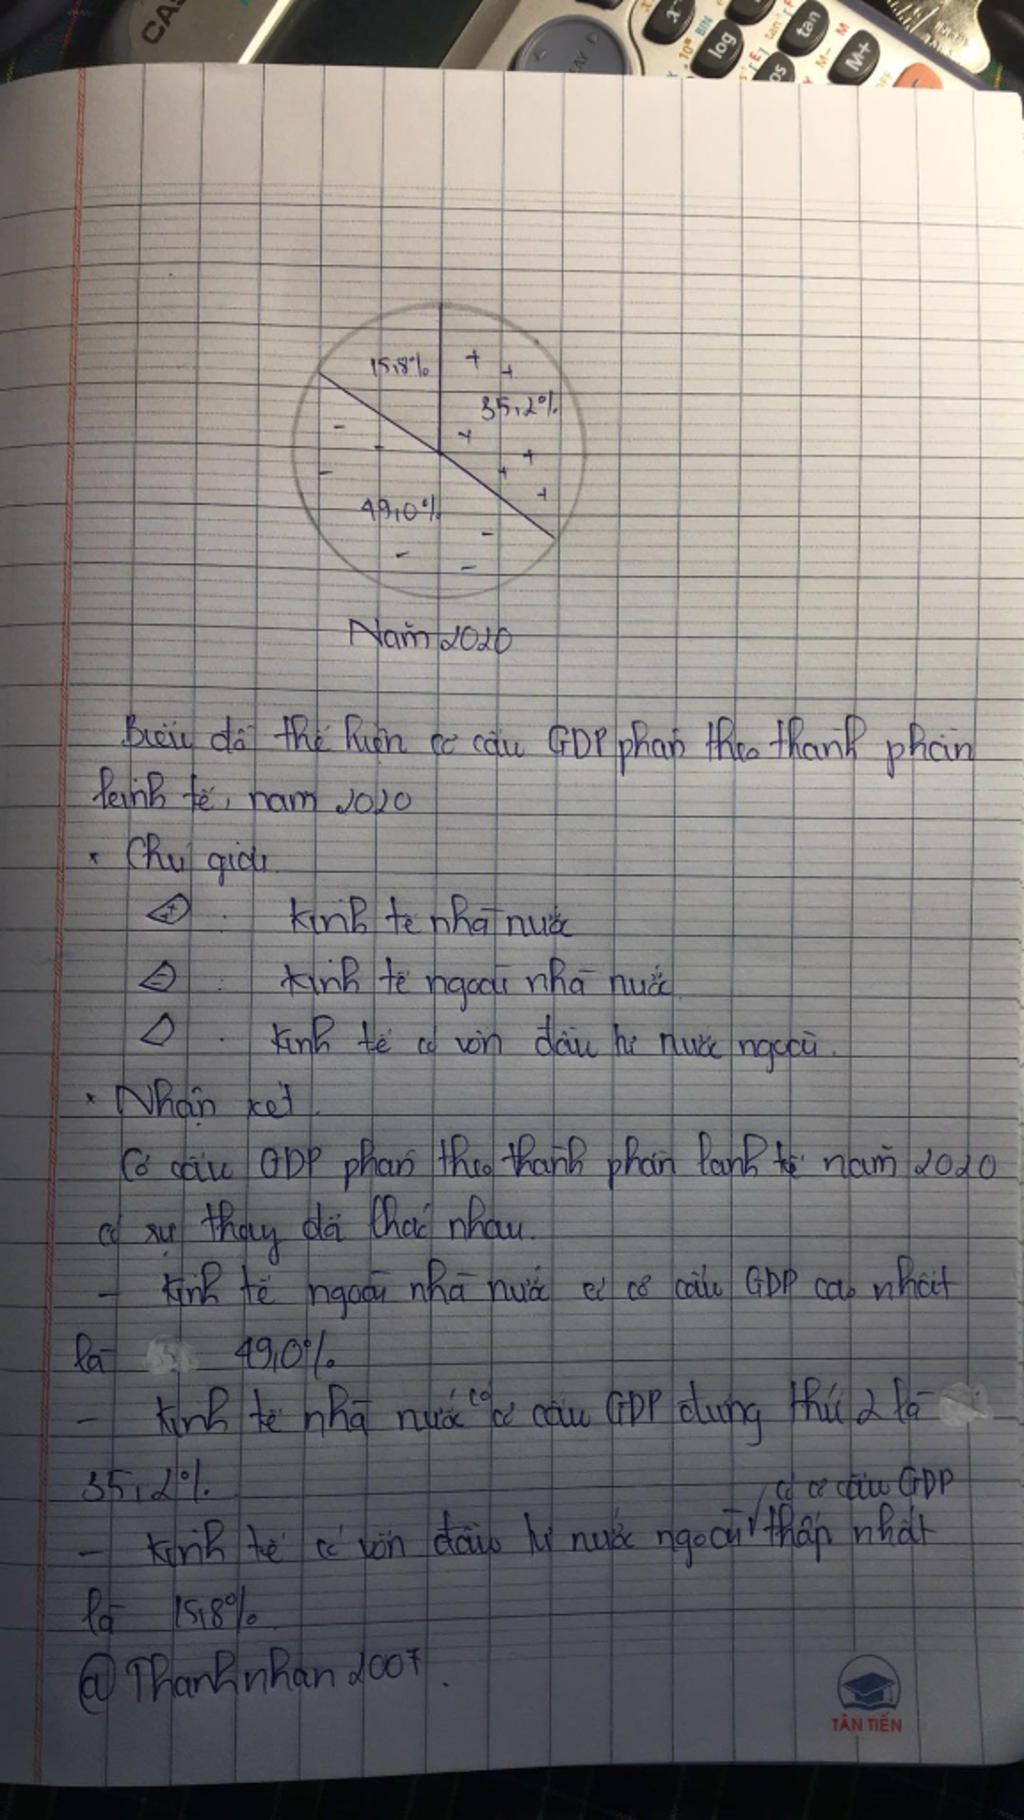 CAS
log
tan
M+
15,8%
35,2%
49,0%
Năm 2020
Biểu đồ thể hiện cơ cấu GDP phân theo thành phần
kinh tế, năm 2020
* Chú giải
+ : kinh tế nhà nước
- : kinh tế ngoài nhà nước
: kinh tế có vốn đầu tư nước ngoài.
* Nhận xét.
Cơ cấu GDP phân theo thành phần kinh tế năm 2020
có sự thay đổi khác nhau.
- kinh tế ngoài nhà nước có cơ cấu GDP cao nhất
là 49,0%
- kinh tế nhà nước có cơ cấu GDP đứng thứ 2 là
35,2%.
- kinh tế có vốn đầu tư nước ngoài có cơ cấu GDP thấp nhất
là 15,8%
@Thanhnhan2007.
TÂN TIẾN